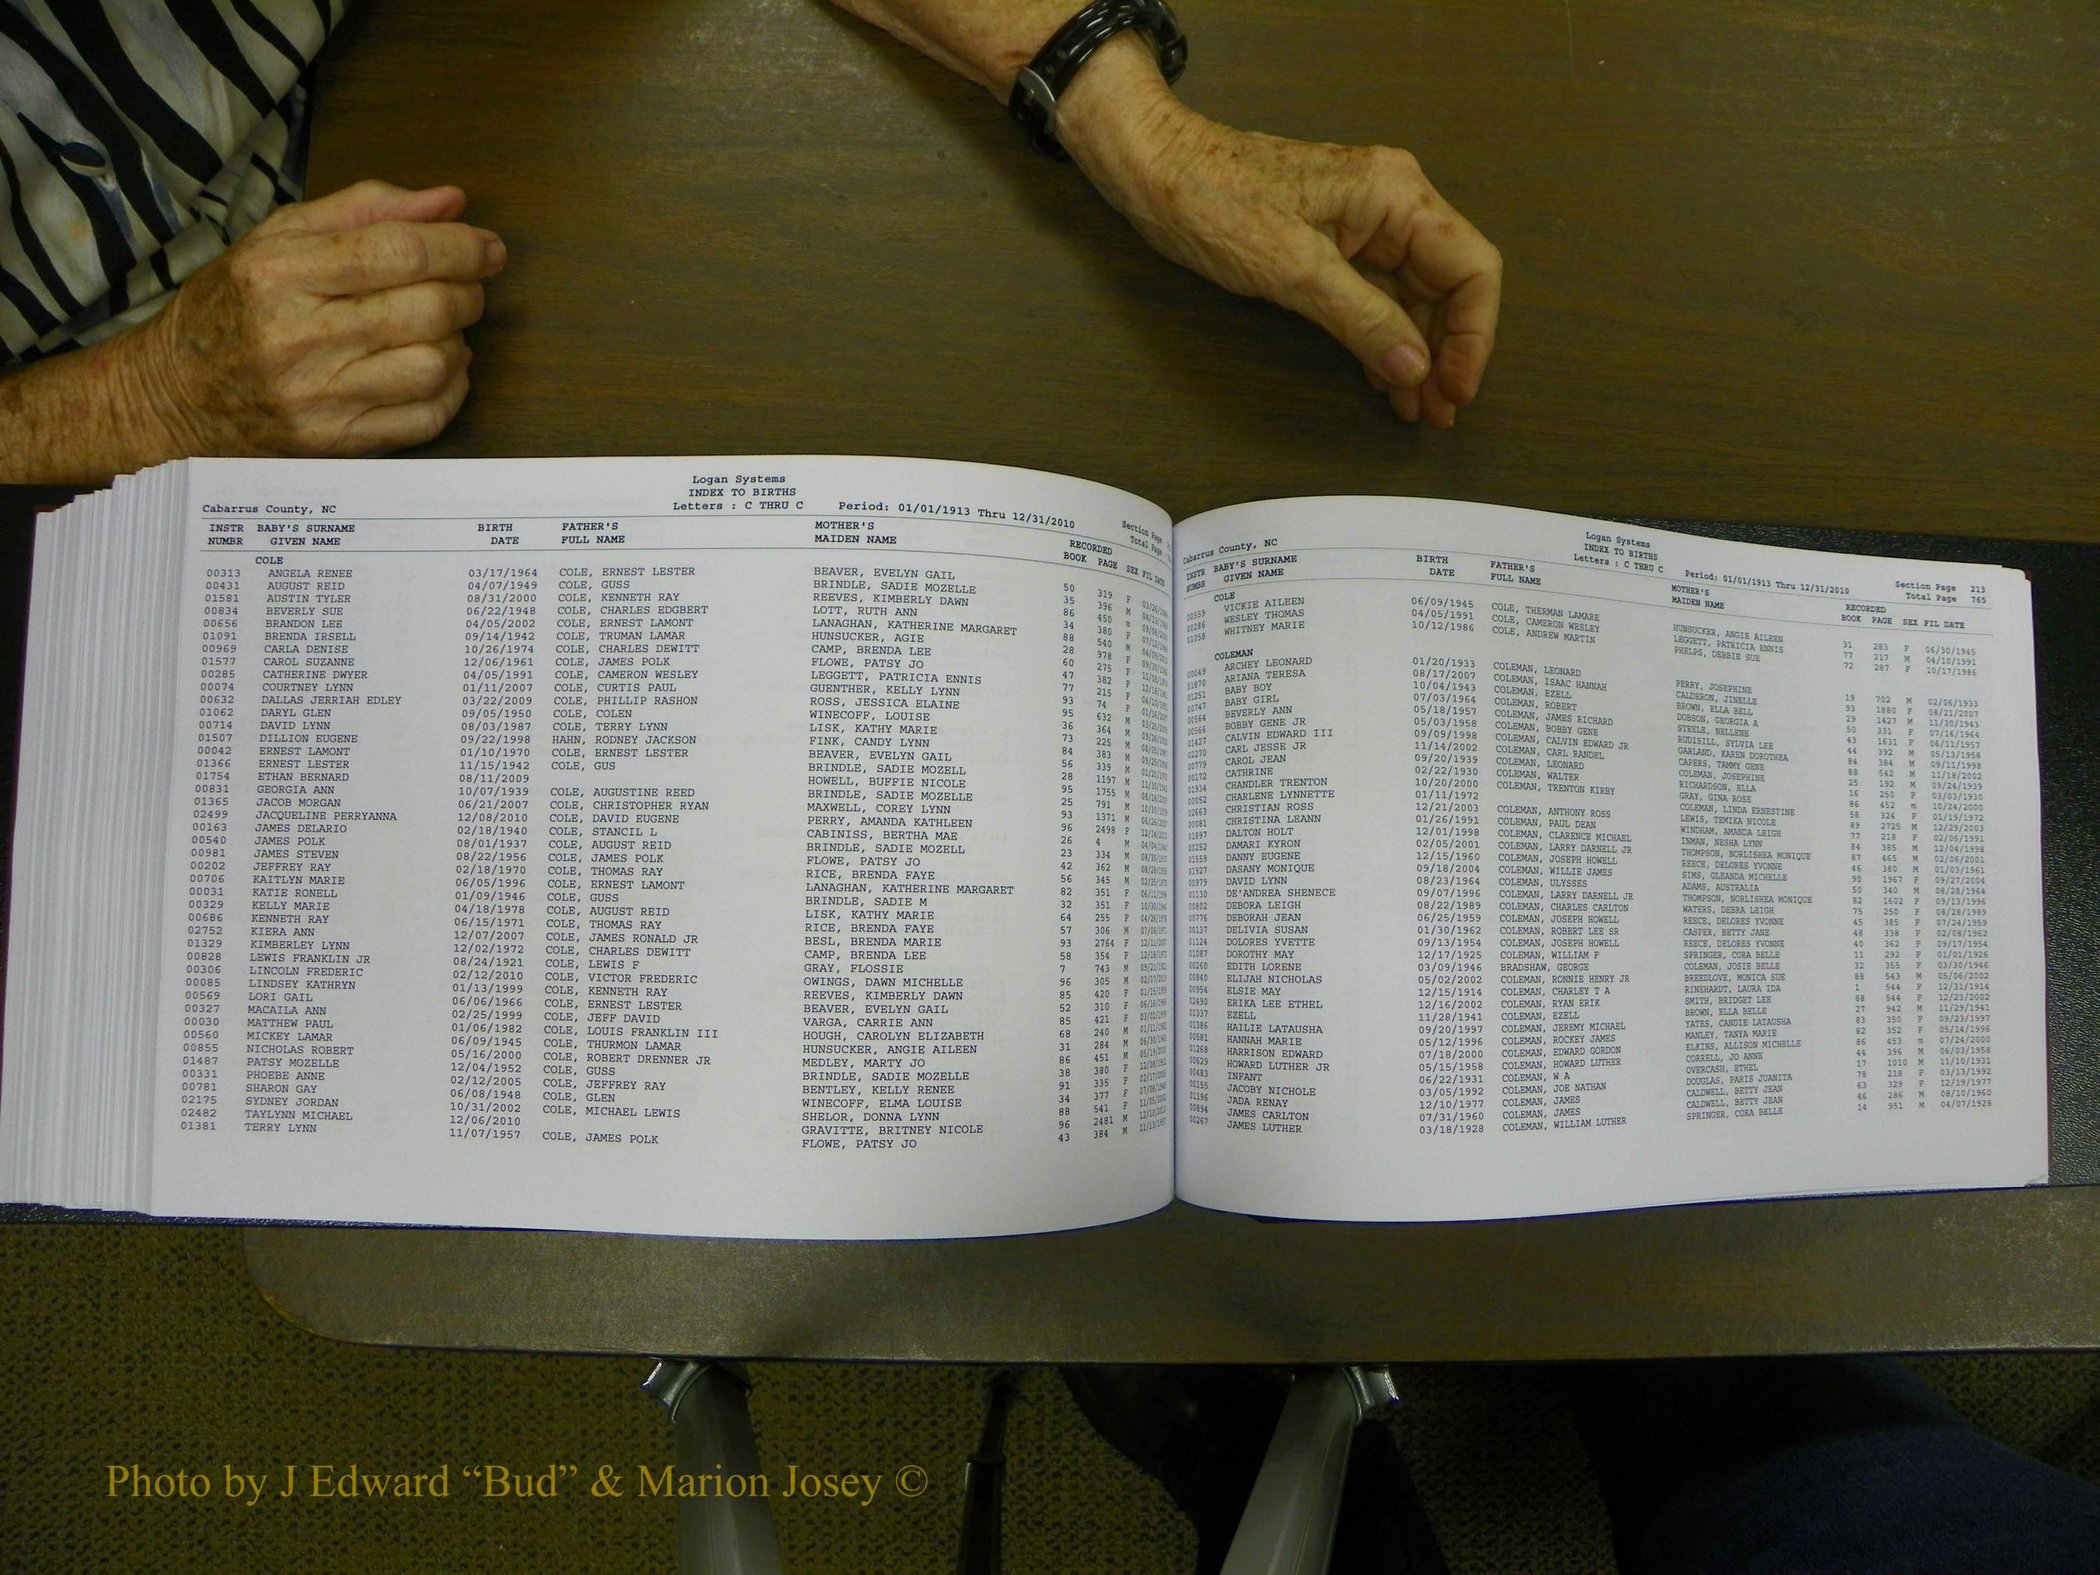 Logan Systems
INDEX TO BIRTHS
Cabarrus County, NC Letters : C THRU C Period: 01/01/1913 Thru 12/31/2010 Section Page
Total Page
INSTR BABY'S SURNAME BIRTH FATHER'S MOTHER'S RECORDED
NUMBR GIVEN NAME DATE FULL NAME MAIDEN NAME BOOK PAGE SEX FIL DATE
COLE
00313 ANGELA RENEE 03/17/1964 COLE, ERNEST LESTER BEAVER, EVELYN GAIL 50 319 F
00431 AUGUST REID 04/07/1949 COLE, GUSS BRINDLE, SADIE MOZELLE 35 396 M
01581 AUSTIN TYLER 08/31/2000 COLE, KENNETH RAY REEVES, KIMBERLY DAWN 86 450 m
00834 BEVERLY SUE 06/22/1948 COLE, CHARLES EDGBERT LOTT, RUTH ANN 34 380 F
00656 BRANDON LEE 04/05/2002 COLE, ERNEST LAMONT LANAGHAN, KATHERINE MARGARET 88 540 M
01091 BRENDA IRSELL 09/14/1942 COLE, TRUMAN LAMAR HUNSUCKER, AGIE 28 978 F
00969 CARLA DENISE 10/26/1974 COLE, CHARLES DEWITT CAMP, BRENDA LEE 60 275 F
01577 CAROL SUZANNE 12/06/1961 COLE, JAMES POLK FLOWE, PATSY JO 47 382 F
00285 CATHERINE DWYER 04/05/1991 COLE, CAMERON WESLEY LEGGETT, PATRICIA ENNIS 77 215 F
00074 COURTNEY LYNN 01/11/2007 COLE, CURTIS PAUL GUENTHER, KELLY LYNN 93 74 F
00632 DALLAS JERRIAH EDLEY 03/22/2009 COLE, PHILLIP RASHON ROSS, JESSICA ELAINE 95 632 M
01062 DARYL GLEN 09/05/1950 COLE, COLEN WINECOFF, LOUISE 36 364 M
00714 DAVID LYNN 08/03/1987 COLE, TERRY LYNN LISK, KATHY MARIE 73 225 M
01507 DILLION EUGENE 09/22/1998 HAHN, RODNEY JACKSON FINK, CANDY LYNN 84 383 M
00042 ERNEST LAMONT 01/10/1970 COLE, ERNEST LESTER BEAVER, EVELYN GAIL 56 339 M
01366 ERNEST LESTER 11/15/1942 COLE, GUS BRINDLE, SADIE MOZELL 28 1197 M
01754 ETHAN BERNARD 08/11/2009 HOWELL, BUFFIE NICOLE 95 1755 M
00831 GEORGIA ANN 10/07/1939 COLE, AUGUSTINE REED BRINDLE, SADIE MOZELLE 25 791
01365 JACOB MORGAN 06/21/2007 COLE, CHRISTOPHER RYAN MAXWELL, COREY LYNN 93 1371 M
02499 JACQUELINE PERRYANNA 12/08/2010 COLE, DAVID EUGENE PERRY, AMANDA KATHLEEN 96 2498 F
00163 JAMES DELARIO 02/18/1940 COLE, STANCIL L CABINISS, BERTHA MAE 26 4 M
00540 JAMES POLK 08/01/1937 COLE, AUGUST REID BRINDLE, SADIE MOZELL 23 334 M
00981 JAMES STEVEN 08/22/1956 COLE, JAMES POLK FLOWE, PATSY JO 42 362 M
00202 JEFFREY RAY 02/18/1970 COLE, THOMAS RAY RICE, BRENDA FAYE 56 345 M
00706 KAITLYN MARIE 06/05/1996 COLE, ERNEST LAMONT LANAGHAN, KATHERINE MARGARET 82 351 F
00031 KATIE RONELL 01/09/1946 COLE, GUSS BRINDLE, SADIE M 32 351 F
00329 KELLY MARIE 04/18/1978 COLE, AUGUST REID LISK, KATHY MARIE 64 255 F
00686 KENNETH RAY 06/15/1971 COLE, THOMAS RAY RICE, BRENDA FAYE 57 306 M
02752 KIERA ANN 12/07/2007 COLE, JAMES RONALD JR BESL, BRENDA MARIE 93 2764 F
01329 KIMBERLEY LYNN 12/02/1972 COLE, CHARLES DEWITT CAMP, BRENDA LEE 58 354 F
00828 LEWIS FRANKLIN JR 08/24/1921 COLE, LEWIS F GRAY, FLOSSIE 7 743 M
00306 LINCOLN FREDERIC 02/12/2010 COLE, VICTOR FREDERIC OWINGS, DAWN MICHELLE 96 305 M
00085 LINDSEY KATHRYN 01/13/1999 COLE, KENNETH RAY REEVES, KIMBERLY DAWN 85 420 F
00569 LORI GAIL 06/06/1966 COLE, ERNEST LESTER BEAVER, EVELYN GAIL 52 310 F
00327 MACAILA ANN 02/25/1999 COLE, JEFF DAVID VARGA, CARRIE ANN 85 421 F
00030 MATTHEW PAUL 01/06/1982 COLE, LOUIS FRANKLIN III HOUGH, CAROLYN ELIZABETH 68 240 M
00560 MICKEY LAMAR 06/09/1945 COLE, THURMON LAMAR HUNSUCKER, ANGIE AILEEN 31 284 M
00855 NICHOLAS ROBERT 05/16/2000 COLE, ROBERT DRENNER JR MEDLEY, MARTY JO 86 451 M
01487 PATSY MOZELLE 12/04/1952 COLE, GUSS BRINDLE, SADIE MOZELLE 38 380 F
00331 PHOEBE ANNE 02/12/2005 COLE, JEFFREY RAY BENTLEY, KELLY RENEE 91 335 F
00781 SHARON GAY 06/08/1948 COLE, GLEN WINECOFF, ELMA LOUISE 34 377 F
02175 SYDNEY JORDAN 10/31/2002 COLE, MICHAEL LEWIS SHELOR, DONNA LYNN 88 541 F
02482 TAYLYNN MICHAEL 12/06/2010 GRAVITTE, BRITNEY NICOLE 96 2481 M
01381 TERRY LYNN 11/07/1957 COLE, JAMES POLK FLOWE, PATSY JO 43 384 M
Logan Systems
INDEX TO BIRTHS
Cabarrus County, NC Letters : C THRU C Period: 01/01/1913 Thru 12/31/2010 Section Page 213
Total Page 765
INSTR BABY'S SURNAME BIRTH FATHER'S MOTHER'S RECORDED
NUMBR GIVEN NAME DATE FULL NAME MAIDEN NAME BOOK PAGE SEX FIL DATE
COLE
00559 VICKIE AILEEN 06/09/1945 COLE, THERMAN LAMARE HUNSUCKER, ANGIE AILEEN 31 283 F 06/30/1945
00286 WESLEY THOMAS 04/05/1991 COLE, CAMERON WESLEY LEGGETT, PATRICIA ENNIS 77 217 M 04/10/1991
01058 WHITNEY MARIE 10/12/1986 COLE, ANDREW MARTIN PHELPS, DEBBIE SUE 72 287 F 10/17/1986
COLEMAN
00049 ARCHEY LEONARD 01/20/1933 COLEMAN, LEONARD PERRY, JOSEPHINE 19 702 M 02/06/1933
01870 ARIANA TERESA 08/17/2007 COLEMAN, ISAAC HANNAH CALDERON, JINELLE 93 1880 F 08/21/2007
01251 BABY BOY 10/04/1943 COLEMAN, EZELL BROWN, ELLA BELL 29 1427 M 11/30/1943
00747 BABY GIRL 07/03/1964 COLEMAN, ROBERT DOBSON, GEORGIA A 50 331 F 07/16/1964
00564 BEVERLY ANN 05/18/1957 COLEMAN, JAMES RICHARD STEELE, NELLENE 43 1631 F 06/11/1957
00566 BOBBY GENE JR 05/03/1958 COLEMAN, BOBBY GENE RUDISILL, SYLVIA LEE 44 392 M 05/13/1958
01427 CALVIN EDWARD III 09/09/1998 COLEMAN, CALVIN EDWARD JR GARLAND, KAREN DOROTHEA 84 384 M 09/11/1998
02270 CARL JESSE JR 11/14/2002 COLEMAN, CARL RANDEL CAPERS, TAMMY GENE 88 542 M 11/18/2002
00779 CAROL JEAN 09/20/1939 COLEMAN, LEONARD COLEMAN, JOSEPHINE 25 192 M 09/24/1939
00172 CATHRINE 02/22/1930 COLEMAN, WALTER RICHARDSON, ELLA 16 250 F 03/03/1930
01934 CHANDLER TRENTON 10/20/2000 COLEMAN, TRENTON KIRBY GRAY, GINA ROSE 86 452 m 10/24/2000
00052 CHARLENE LYNNETTE 01/11/1972 COLEMAN, LINDA ERNESTINE 58 324 F 01/19/1972
02663 CHRISTIAN ROSS 12/21/2003 COLEMAN, ANTHONY ROSS LEWIS, TEMIKA NICOLE 89 2725 M 12/29/2003
00081 CHRISTINA LEANN 01/26/1991 COLEMAN, PAUL DEAN WINDHAM, AMANDA LEIGH 77 218 F 02/06/1991
01897 DALTON HOLT 12/01/1998 COLEMAN, CLARENCE MICHAEL INMAN, NESHA LYNN 84 385 M 12/04/1998
00252 DAMARI KYRON 02/05/2001 COLEMAN, LARRY DARNELL JR THOMPSON, NORLISHEA MONIQUE 87 465 M 02/06/2001
01559 DANNY EUGENE 12/15/1960 COLEMAN, JOSEPH HOWELL REECE, DELORES YVONNE 46 380 M 01/03/1961
01927 DASANY MONIQUE 09/18/2004 COLEMAN, WILLIE JAMES SIMS, GLEANDA MICHELLE 90 1967 F 09/27/2004
00979 DAVID LYNN 08/23/1964 COLEMAN, ULYSSES ADAMS, AUSTRALIA 50 340 M 08/28/1964
01130 DE'ANDREA SHENECE 09/07/1996 COLEMAN, LARRY DARNELL JR THOMPSON, NORLISHEA MONIQUE 82 1602 F 09/13/1996
00802 DEBORA LEIGH 08/22/1989 COLEMAN, CHARLES CARLTON WATERS, DEBRA LEIGH 75 250 F 08/28/1989
00776 DEBORAH JEAN 06/25/1959 COLEMAN, JOSEPH HOWELL REECE, DELORES YVONNE 45 385 F 07/24/1959
00137 DELIVIA SUSAN 01/30/1962 COLEMAN, ROBERT LEE SR CASPER, BETTY JANE 48 338 F 02/08/1962
01124 DOLORES YVETTE 09/13/1954 COLEMAN, JOSEPH HOWELL REECE, DELORES YVONNE 40 362 F 09/17/1954
01087 DOROTHY MAY 12/17/1925 COLEMAN, WILLIAM F SPRINGER, CORA BELLE 11 292 F 01/01/1926
00260 EDITH LORENE 03/09/1946 BRADSHAW, GEORGE COLEMAN, JOSIE BELLE 32 355 F 03/30/1946
00840 ELIJAH NICHOLAS 05/02/2002 COLEMAN, RONNIE HENRY JR BREEDLOVE, MONICA SUE 88 543 M 05/06/2002
00954 ELSIE MAY 12/15/1914 COLEMAN, CHARLEY T A RINEHARDT, LAURA IDA 1 544 F 12/31/1914
02490 ERIKA LEE ETHEL 12/16/2002 COLEMAN, RYAN ERIK SMITH, BRIDGET LEE 88 544 F 12/23/2002
01337 EZELL 11/28/1941 COLEMAN, EZELL BROWN, ELLA BELLE 27 942 M 11/29/1941
01386 HAILIE LATAUSHA 09/20/1997 COLEMAN, JEREMY MICHAEL YATES, CANDIE LATAUSHA 83 350 F 09/23/1997
00581 HANNAH MARIE 05/12/1996 COLEMAN, ROCKEY JAMES MANLEY, TANYA MARIE 82 352 F 05/14/1996
01268 HARRISON EDWARD 07/18/2000 COLEMAN, EDWARD GORDON ELKINS, ALLISON MICHELLE 86 453 m 07/24/2000
00629 HOWARD LUTHER JR 05/15/1958 COLEMAN, HOWARD LUTHER CORRELL, JO ANNE 44 396 M 06/03/1958
00483 INFANT 06/22/1931 COLEMAN, W A OVERCASH, ETHEL 17 1010 M 11/10/1931
00155 JACOBY NICHOLE 03/05/1992 COLEMAN, JOE NATHAN DOUGLAS, PARIS JUANITA 78 218 F 03/13/1992
01196 JADA RENAY 12/10/1977 COLEMAN, JAMES CALDWELL, BETTY JEAN 63 329 F 12/19/1977
00894 JAMES CARLTON 07/31/1960 COLEMAN, JAMES CALDWELL, BETTY JEAN 46 286 M 08/10/1960
00267 JAMES LUTHER 03/18/1928 COLEMAN, WILLIAM LUTHER SPRINGER, CORA BELLE 14 951 M 04/07/1928
Photo by J Edward “Bud” & Marion Josey ©